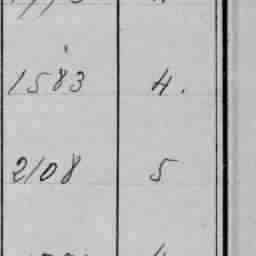 1583 4.
2108 5